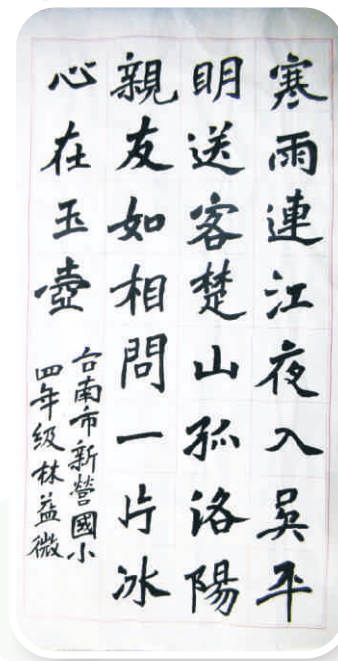 寒雨連江夜入吳平
明送客楚山孤洛陽
親友如相問一片冰
心在玉壺
台南市新營國小
四年級林益微